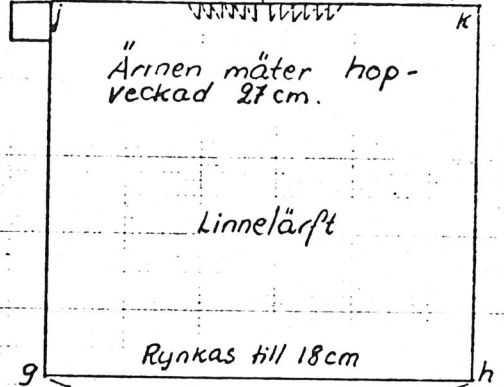 j k
Ärmen mäter hop-
veckad 27 cm.
Linnelärft
Rynkas till 18 cm
g h